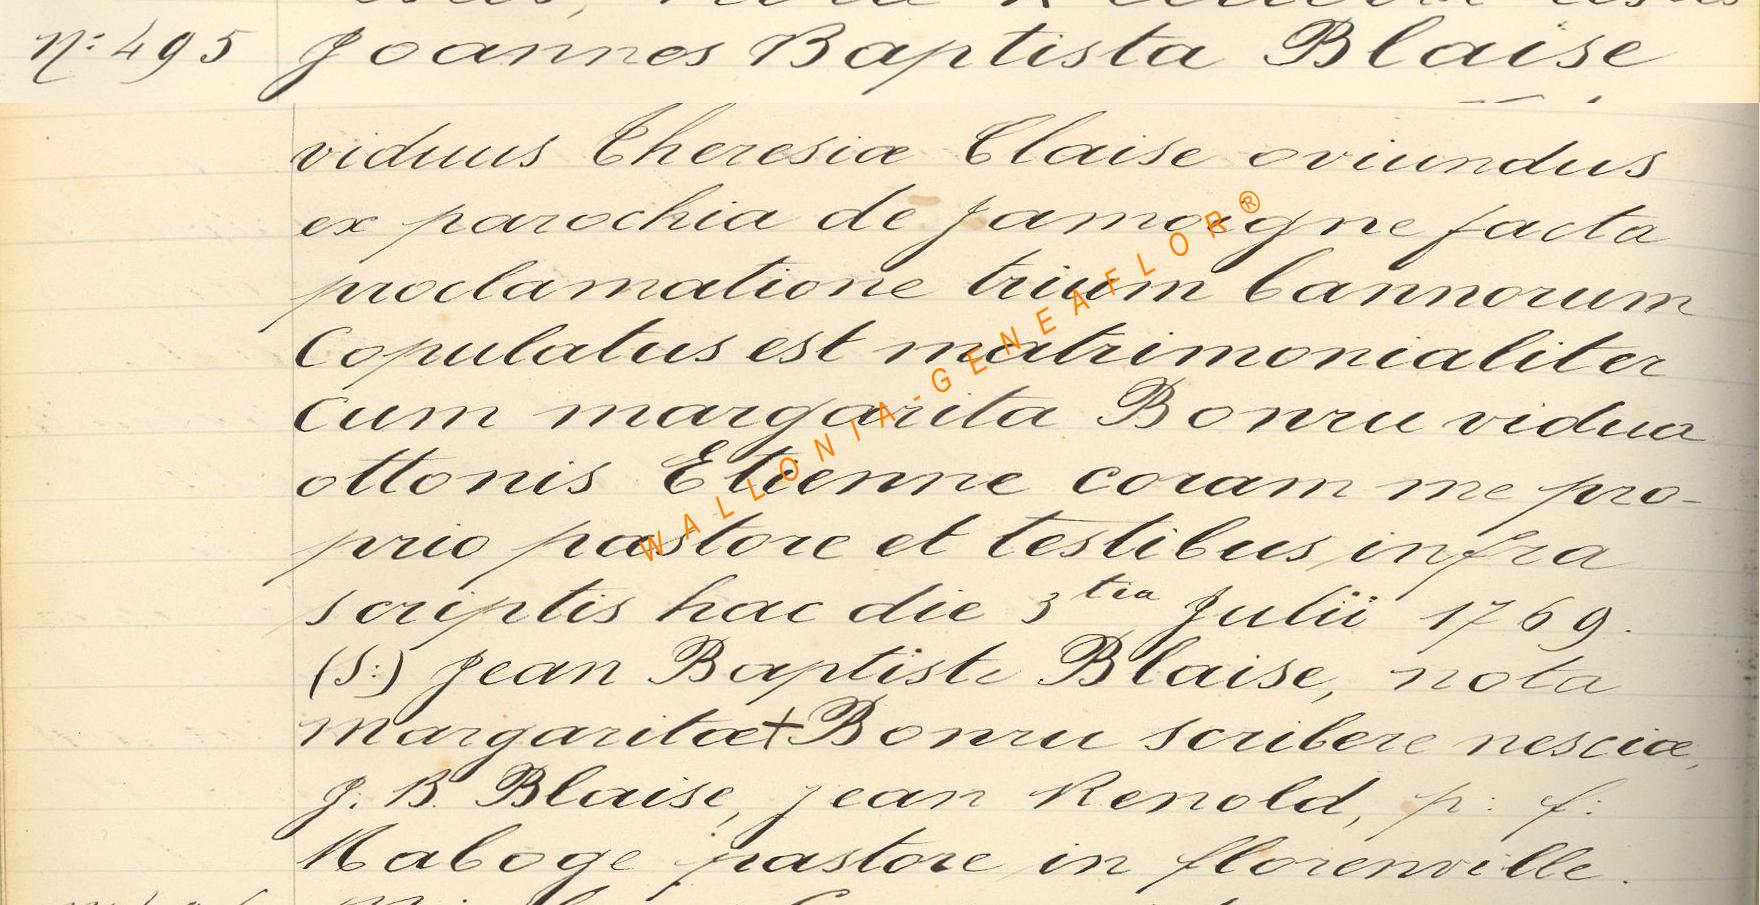 N: 495 Joannes Baptista Blaise
viduus Theresiæ Claise oriundus
ex parochia de Jamoigne facta
proclamatione trium bannorum
Copulatus est matrimonialiter
cum margarita Bonru vidua
ottonis Etienne coram me pro-
prio pastore et testibus infra
scriptis hac die 3tia Julii 1769.
(S:) Jean Baptiste Blaise, nota
margaritæ + Bonru scribere nesciæ,
J. B. Blaise, jean Renold, p: f:
Maboge pastore in florenville.
WALLONIA-GENEAFLOR®